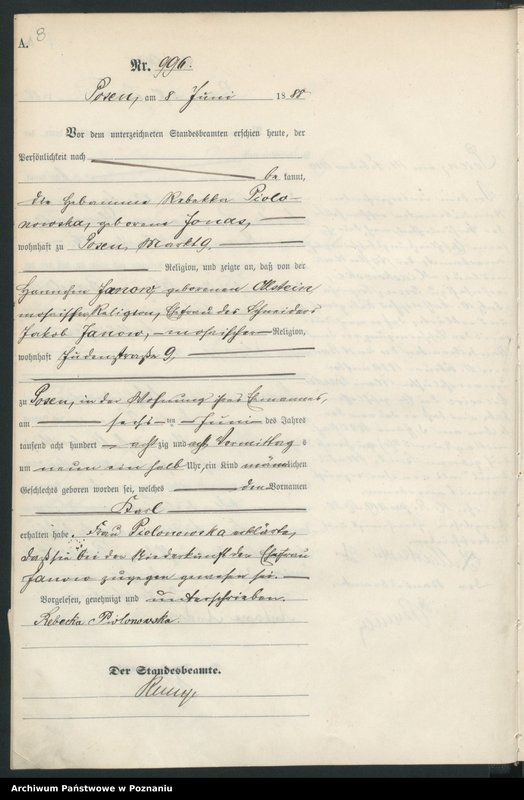 A. 8
Nr. 996.
Posen, am 8 Juni 1888
Vor dem unterzeichneten Standesbeamten erschien heute, der
Persönlichkeit nach
bekannt,
die Hebamme Rebekka Piolo-
nowska, geborene Jonas,
wohnhaft zu Posen, Markt 9,
Religion, und zeigte an, daß von der
Hannchen Janow geborenen Allstein
mosaischer Religion, Ehefrau des Schneiders
Jakob Janow, mosaischer Religion,
wohnhaft Judenstraße 9,
zu Posen, in der Wohnung ihres Ehemannes,
am sechsten Juni des Jahres
tausend acht hundert achtzig und acht Vormittags
um neun ein halb Uhr, ein Kind männlichen
Geschlechts geboren worden sei, welches den Vornamen
Karl
erhalten habe. Frau Piolonowska erklärte,
daß sie bei der Niederkunft der Ehefrau
Janow zugegen gewesen sei.
Vorgelesen, genehmigt und unterschrieben.
Rebecka Piolonowska.
Der Standesbeamte.
Archiwum Państwowe w Poznaniu